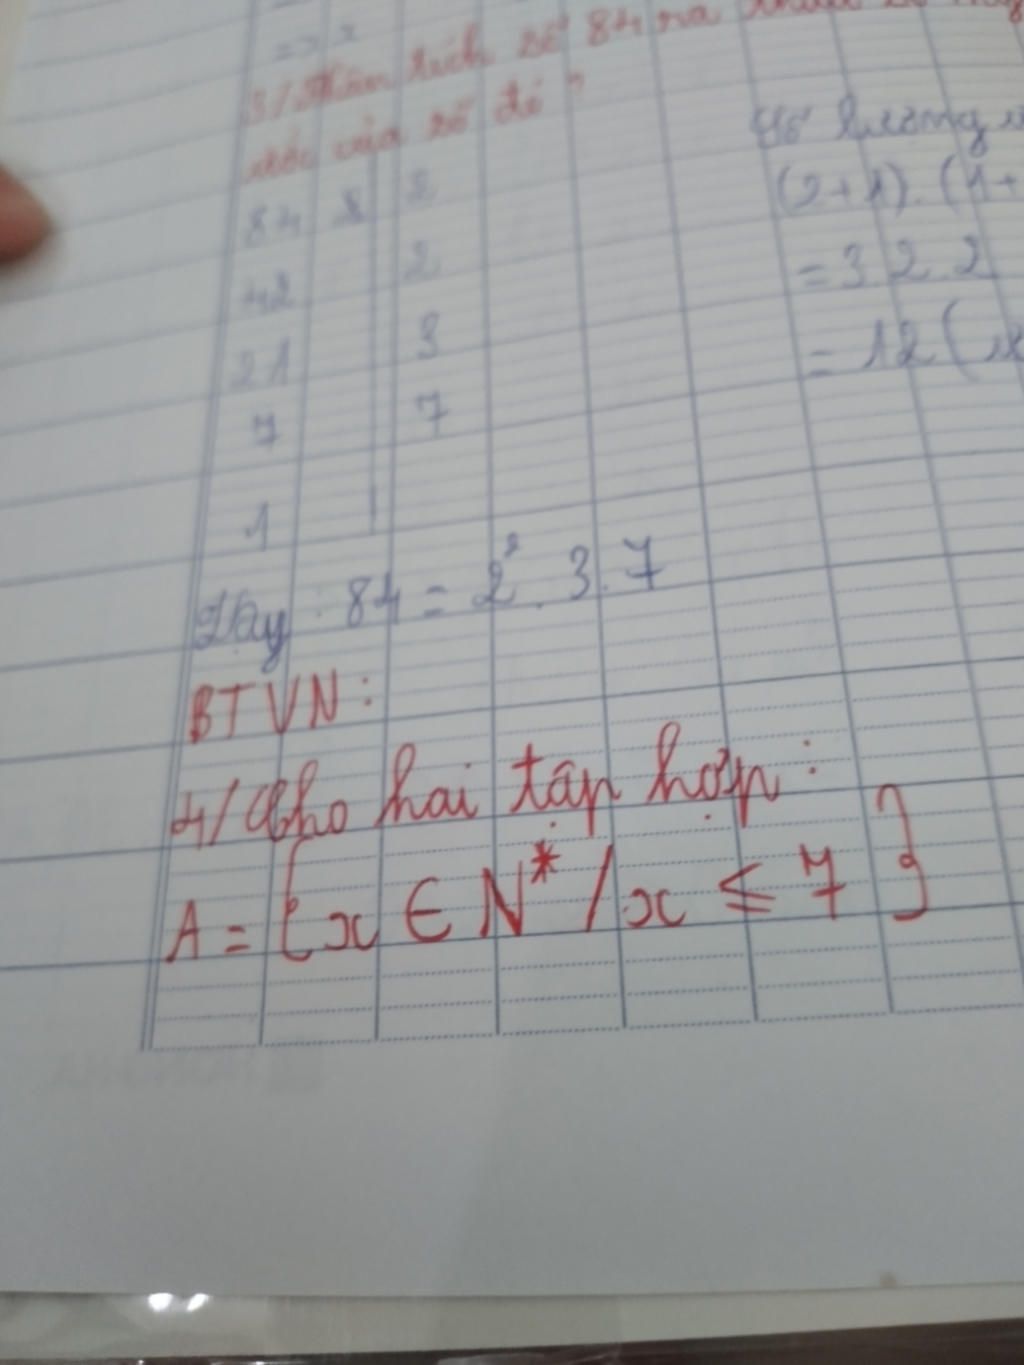 3/ Phân tích số 84 ra
ước của số đó ?
84 2
42 2
21 3
7 7
1
Số lượng
(2+1).(1+
= 3.2.2
= 12 (
Vậy : 84 = 2². 3. 7
BTVN :
4/ Cho hai tập hợp :
A = { x ∈ N* / x ≤ 7 }